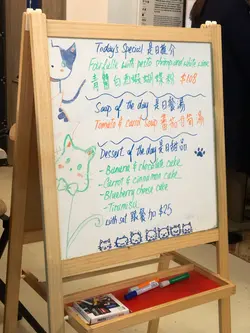 Today's Special 是日推介
Farfalle with pesto shrimp and white wine
青醬白酒蝦蝴蝶粉 $108
Soup of the day 是日餐湯
Tomato & carrot soup 番茄甘筍湯
Dessert of the day 是日甜品
- Banana & chocolate cake
- Carrot & cinnamon cake
- Blueberry cheese cake
- Tiramisu
with set 跟餐 $25